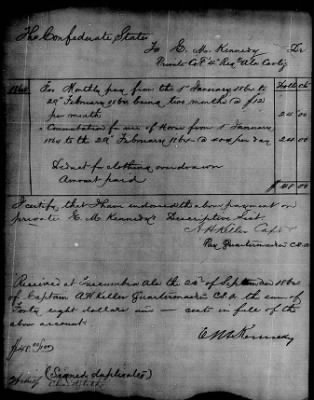 The Confederate States
To E. M. Kennedy Dr
Private Co F 4th Regt Ala Cavly
1864 For Monthly pay from the 1st January 1864 to
29th February 1864 being two months @ $12
per month 24 00
" Commutation for use of Horse from 1st January
1864 to the 29th February 1864 @ 40c per day 24 00
Deduct for clothing overdrawn
Amount paid
$48 00
I certify that I have endorsed the above payment on
private E. M. Kennedy's Descriptive List.
A W Keller Capt
Quartermaster C.S.A
Received at Tuscumbia Ala the 24th of September 1864
of Captain A W Keller Quartermaster C.S.A. the sum of
Forty eight dollars and — cents in full of the
above account.
E M Kennedy
$48 00/100
(Signed duplicates)